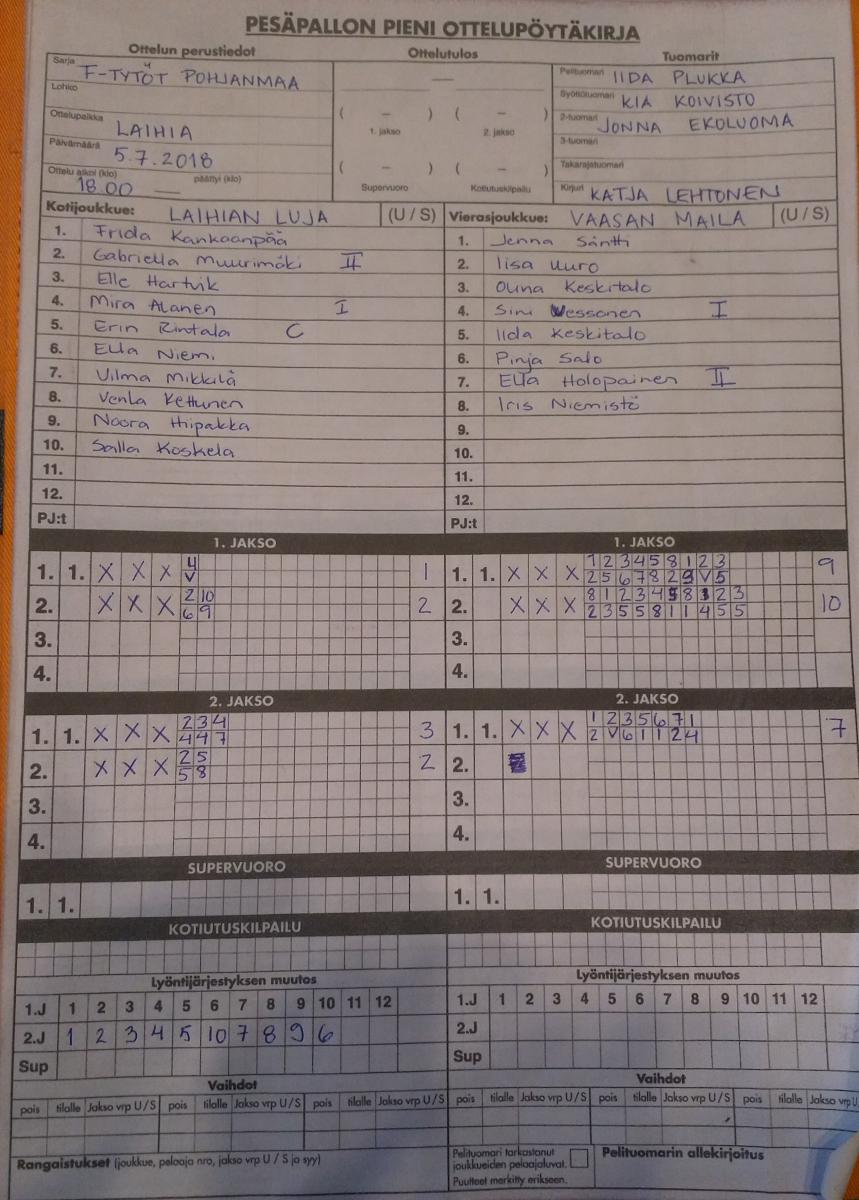 PESÄPALLON PIENI OTTELUPÖYTÄKIRJA
Ottelun perustiedot
Sarja F-TYTÖT POHJANMAA
Lohko
Ottelupaikka LAIHIA
Päivämäärä 5.7.2018
Ottelu alkoi (klo) 18.00 päättyi (klo)
Ottelutulos
—
( – ) ( – )
1. jakso 2. jakso
( – ) ( – )
Supervuoro Kotiutuskilpailu
Tuomarit
Pelituomari IIDA PLUKKA
Syöttötuomari KIA KOIVISTO
2-tuomari JONNA EKOLUOMA
3-tuomari
Takarajatuomari
Kirjuri KATJA LEHTONEN
Kotijoukkue: LAIHIAN LUJA (U / S)
1. Frida Kankaanpää
2. Gabriella Muurimäki II
3. Elle Hartvik
4. Mira Alanen I
5. Erin Rintala C
6. Ella Niemi
7. Vilma Mikkilä
8. Venla Kettunen
9. Noora Hiipakka
10. Salla Koskela
11.
12.
PJ:t
Vierasjoukkue: VAASAN MAILA (U / S)
1. Jenna Säntti
2. Iisa Uuro
3. Oliina Keskitalo
4. Sini Wessonen I
5. Iida Keskitalo
6. Pinja Salo
7. Ella Holopainen II
8. Iris Niemistö
9.
10.
11.
12.
PJ:t
1. JAKSO
1. 1. X X X 4 1
V
2. X X X 2 10 2
6 9
3.
4.
1. JAKSO
1. 1. X X X 1 2 3 4 5 8 1 2 3 9
2 5 6 7 8 2 3 V 5
2. X X X 8 1 2 3 4 5 8 1 2 3 10
2 3 5 5 8 1 1 4 5 5
3.
4.
2. JAKSO
1. 1. X X X 2 3 4 3
4 4 7
2. X X X 2 5 2
5 8
3.
4.
2. JAKSO
1. 1. X X X 1 2 3 5 6 7 1 7
2 V 6 1 1 2 4
2.
3.
4.
SUPERVUORO
1. 1.
SUPERVUORO
1. 1.
KOTIUTUSKILPAILU
KOTIUTUSKILPAILU
Lyöntijärjestyksen muutos
1.J 1 2 3 4 5 6 7 8 9 10 11 12
2.J 1 2 3 4 5 10 7 8 9 6
Sup
Lyöntijärjestyksen muutos
1.J 1 2 3 4 5 6 7 8 9 10 11 12
2.J
Sup
Vaihdot
pois tilalle Jakso vrp U / S pois tilalle Jakso vrp U / S pois tilalle Jakso vrp U / S
Vaihdot
pois tilalle Jakso vrp U / S pois tilalle Jakso vrp U / S pois tilalle Jakso vrp U
Rangaistukset (joukkue, pelaaja nro, jakso vrp U / S ja syy)
Pelituomari tarkastanut
joukkueiden pelaajaluvat.
Puutteet merkitty erikseen.
Pelituomarin allekirjoitus